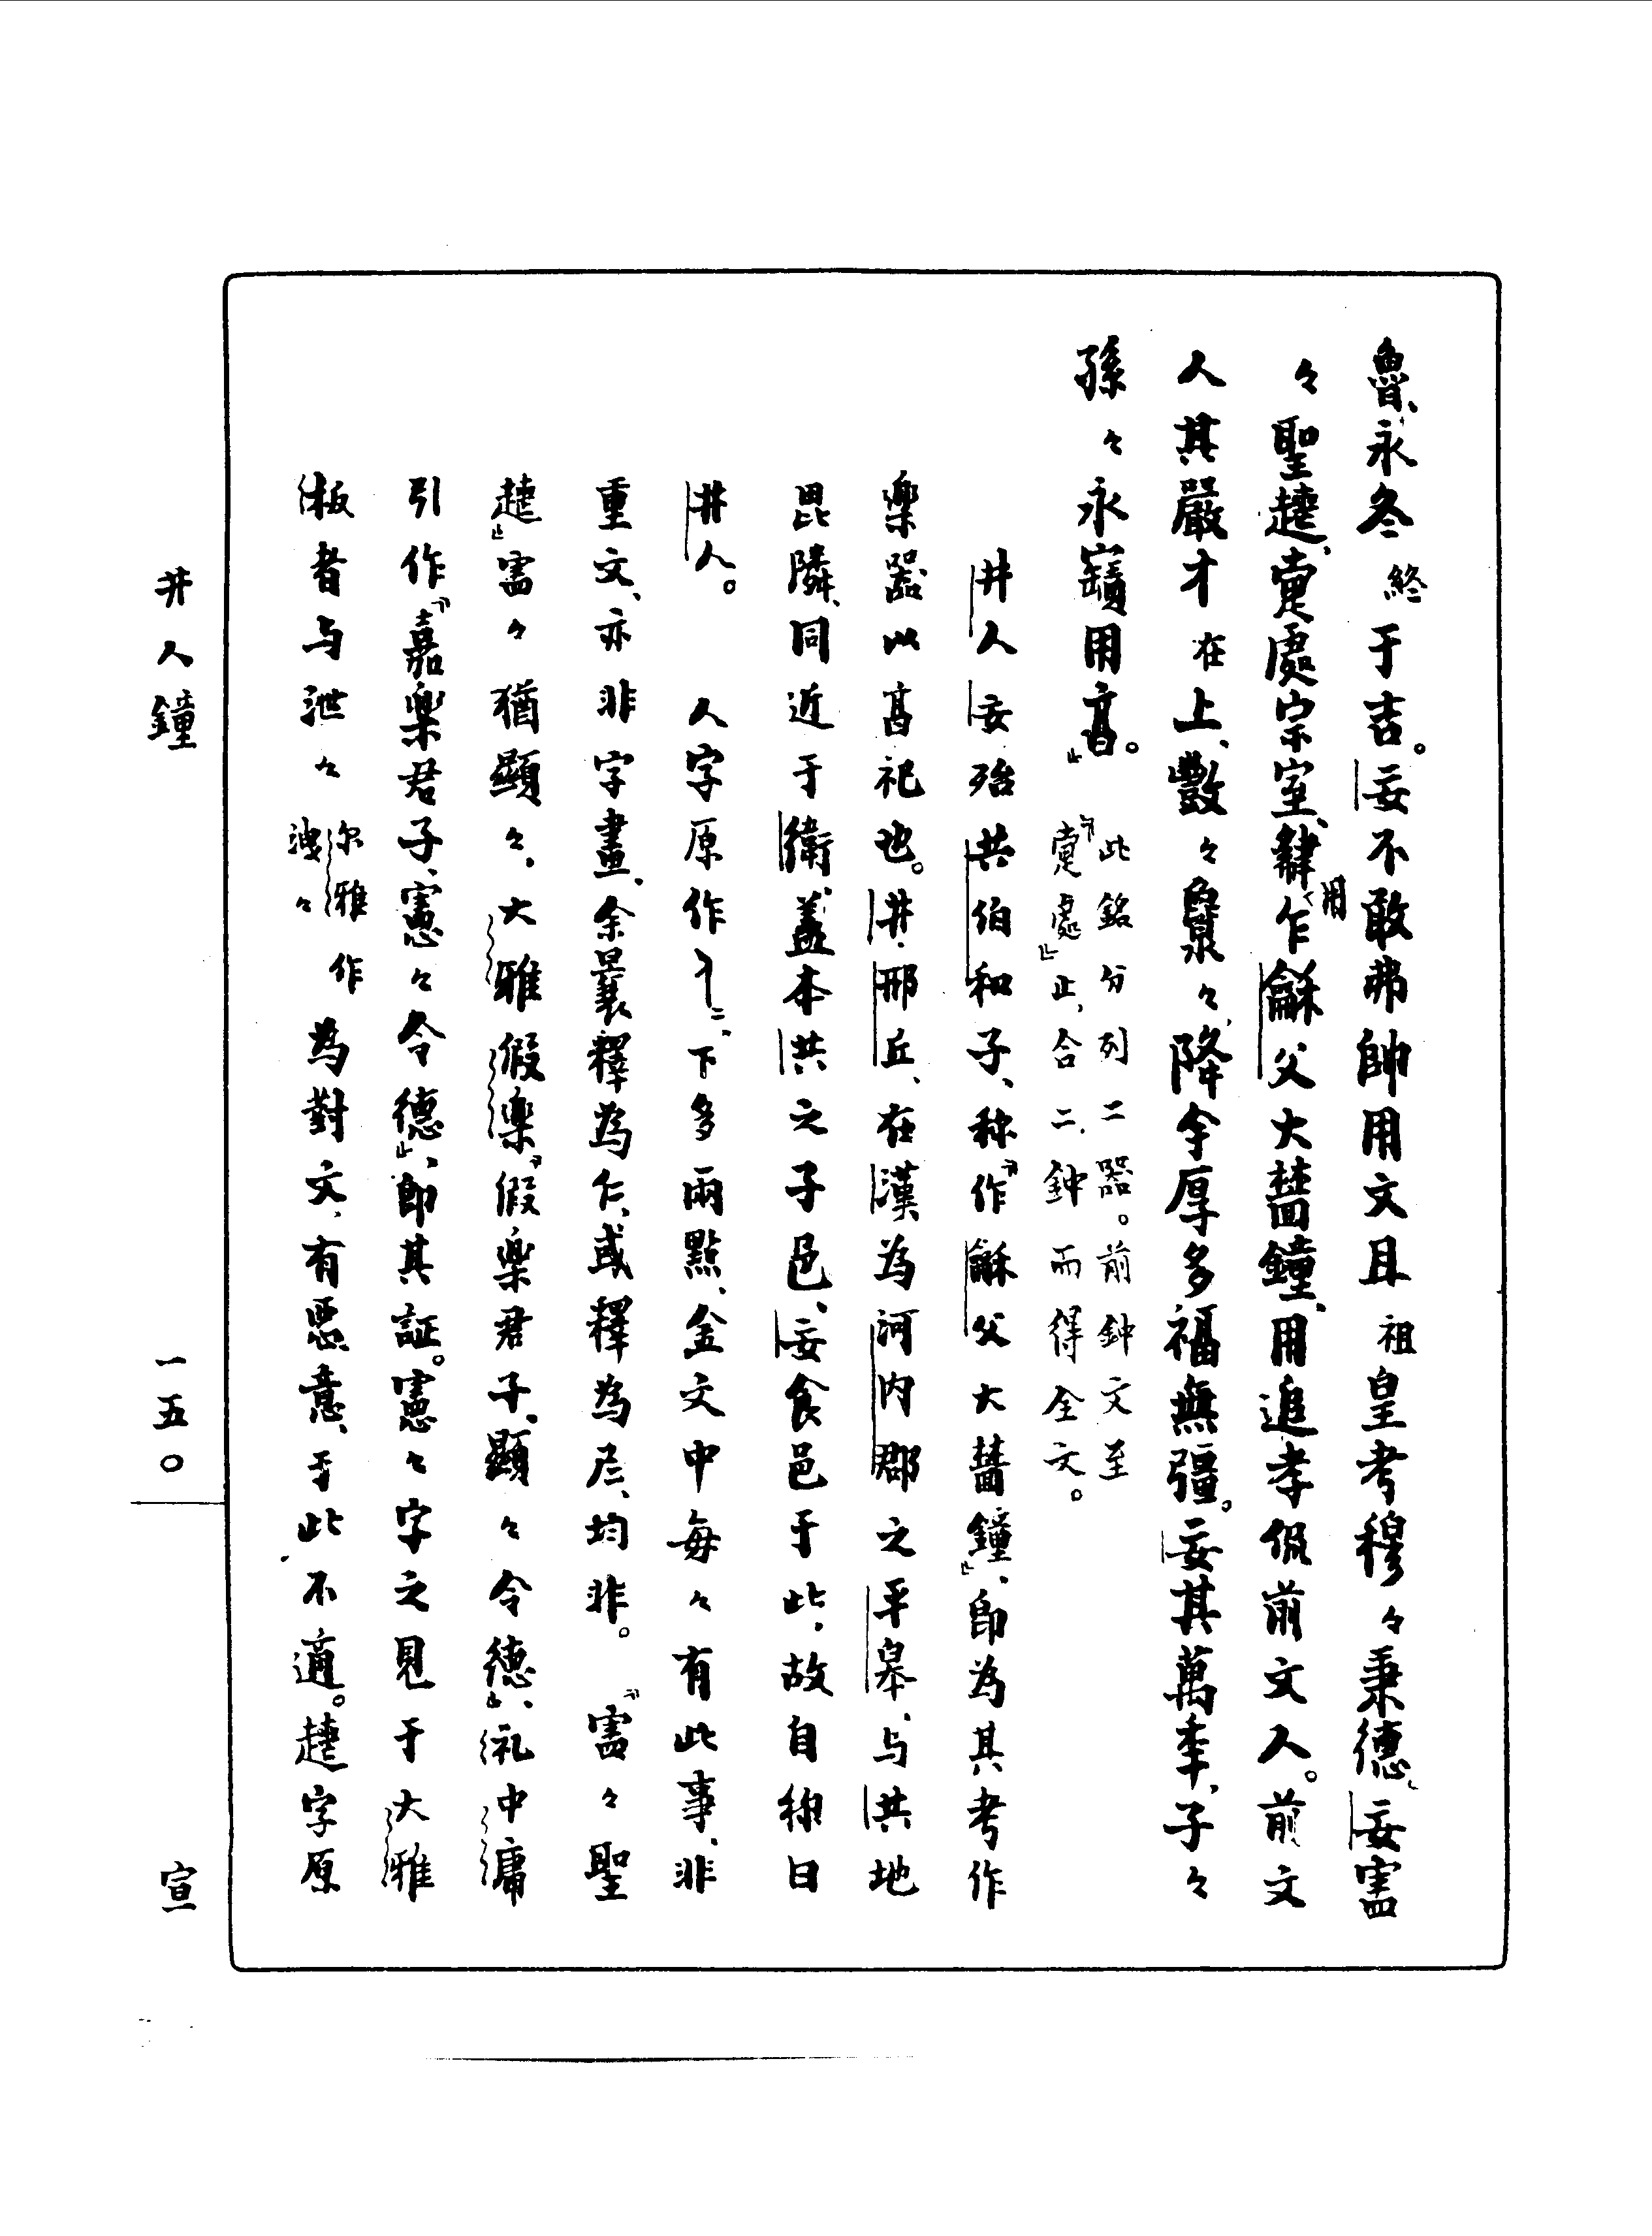 魯、永冬終于吉。妄不敢弗帥用文且祖皇考穆々秉德、妄害
々聖趩、疐處宗室、肆用乍龢父大鐘、用追孝侃前文人。前文
人其嚴才在上、數々㲋々、降余厚多福無彊。妄其萬年、子々
孫々永寶用亯。』此銘分列二器。前鐘文至
『疐處』止、合二鐘而得全文。
井人妄殆共伯和子、称『作龢父大鐘』、即為其考作
樂器以亯祀也。井・邢丘、在漢為河内郡之平皋、与共地
毘隣、同近于衛、蓋本共之子邑、妄食邑于此、故自称曰
井人。 人字原作、下多兩點、金文中每々有此事、非
重文、亦非字畫、余曩釋為仁、或釋為尼、均非。『害々聖
趩』害々猶顯々、大雅假樂『假樂君子、顯々令德』、礼中庸
引作『嘉樂君子、憲々令德』、即其証。憲々字之見于大雅
板者与泄々尔雅作洩々為對文、有惡意、于此不適。趩字原
井人鐘 一五〇 宣